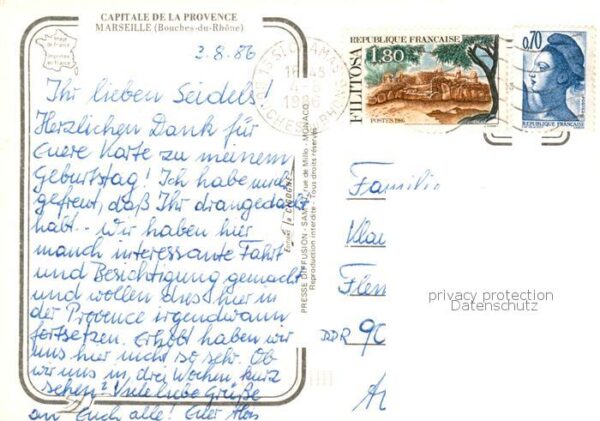 CAPITALE DE LA PROVENCE
MARSEILLE (Bouches-du-Rhône)
Image de France
Imprimée en France
3.8.86
Ihr lieben Seidels!
Herzlichen Dank für
Euere Karte zu meinem
Geburtstag! Ich habe mich
gefreut, daß Ihr drangedacht
habt. - Wir haben hier
manch interessante Fahrt
und Besichtigung gemacht
und wollen dies hier in
der Provence irgendwann
fortsetzen. Erholt haben wir
uns hier nicht so sehr. Ob
wir uns in drei Wochen kurz
sehen? Viele liebe Grüße
an Euch alle! Euer Alois
Editions la CIGOGNE
PRESSE DIFFUSION - SAM rue de Millo - MONACO
Reproduction interdite - Tous droits réservés
13 ST CHAMAS
16 45
1986
RHONE
REPUBLIQUE FRANÇAISE
1,80
FILITOSA
POSTES 1986
0,70
REPUBLIQUE FRANÇAISE
Familie
Klau
Flem
DDR 90
privacy protection
Datenschutz